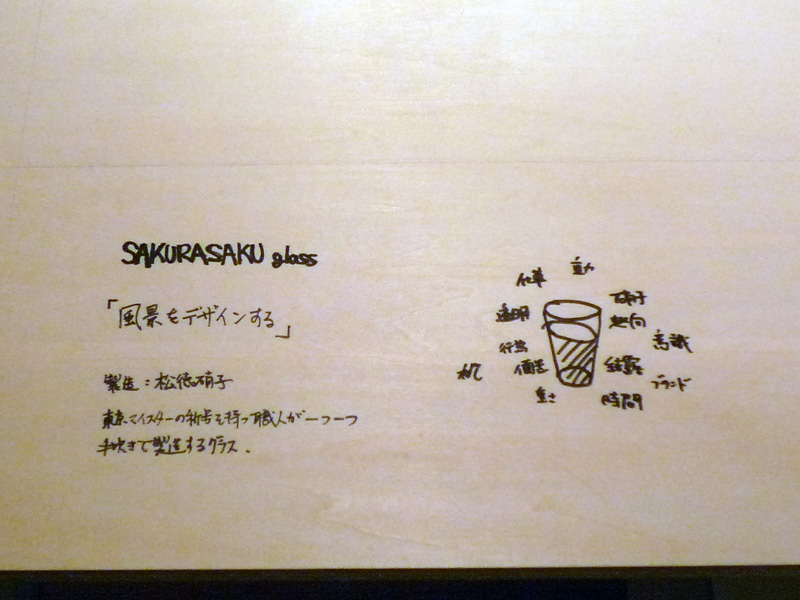 SAKURASAKU glass
「風景をデザインする」
製造：松徳硝子
東京マイスターの称号を持つ職人が一つ一つ
手吹きで製造するグラス.
仕草
透明
硝子
行為
価値
意識
結露
机
ブランド
重さ
時間